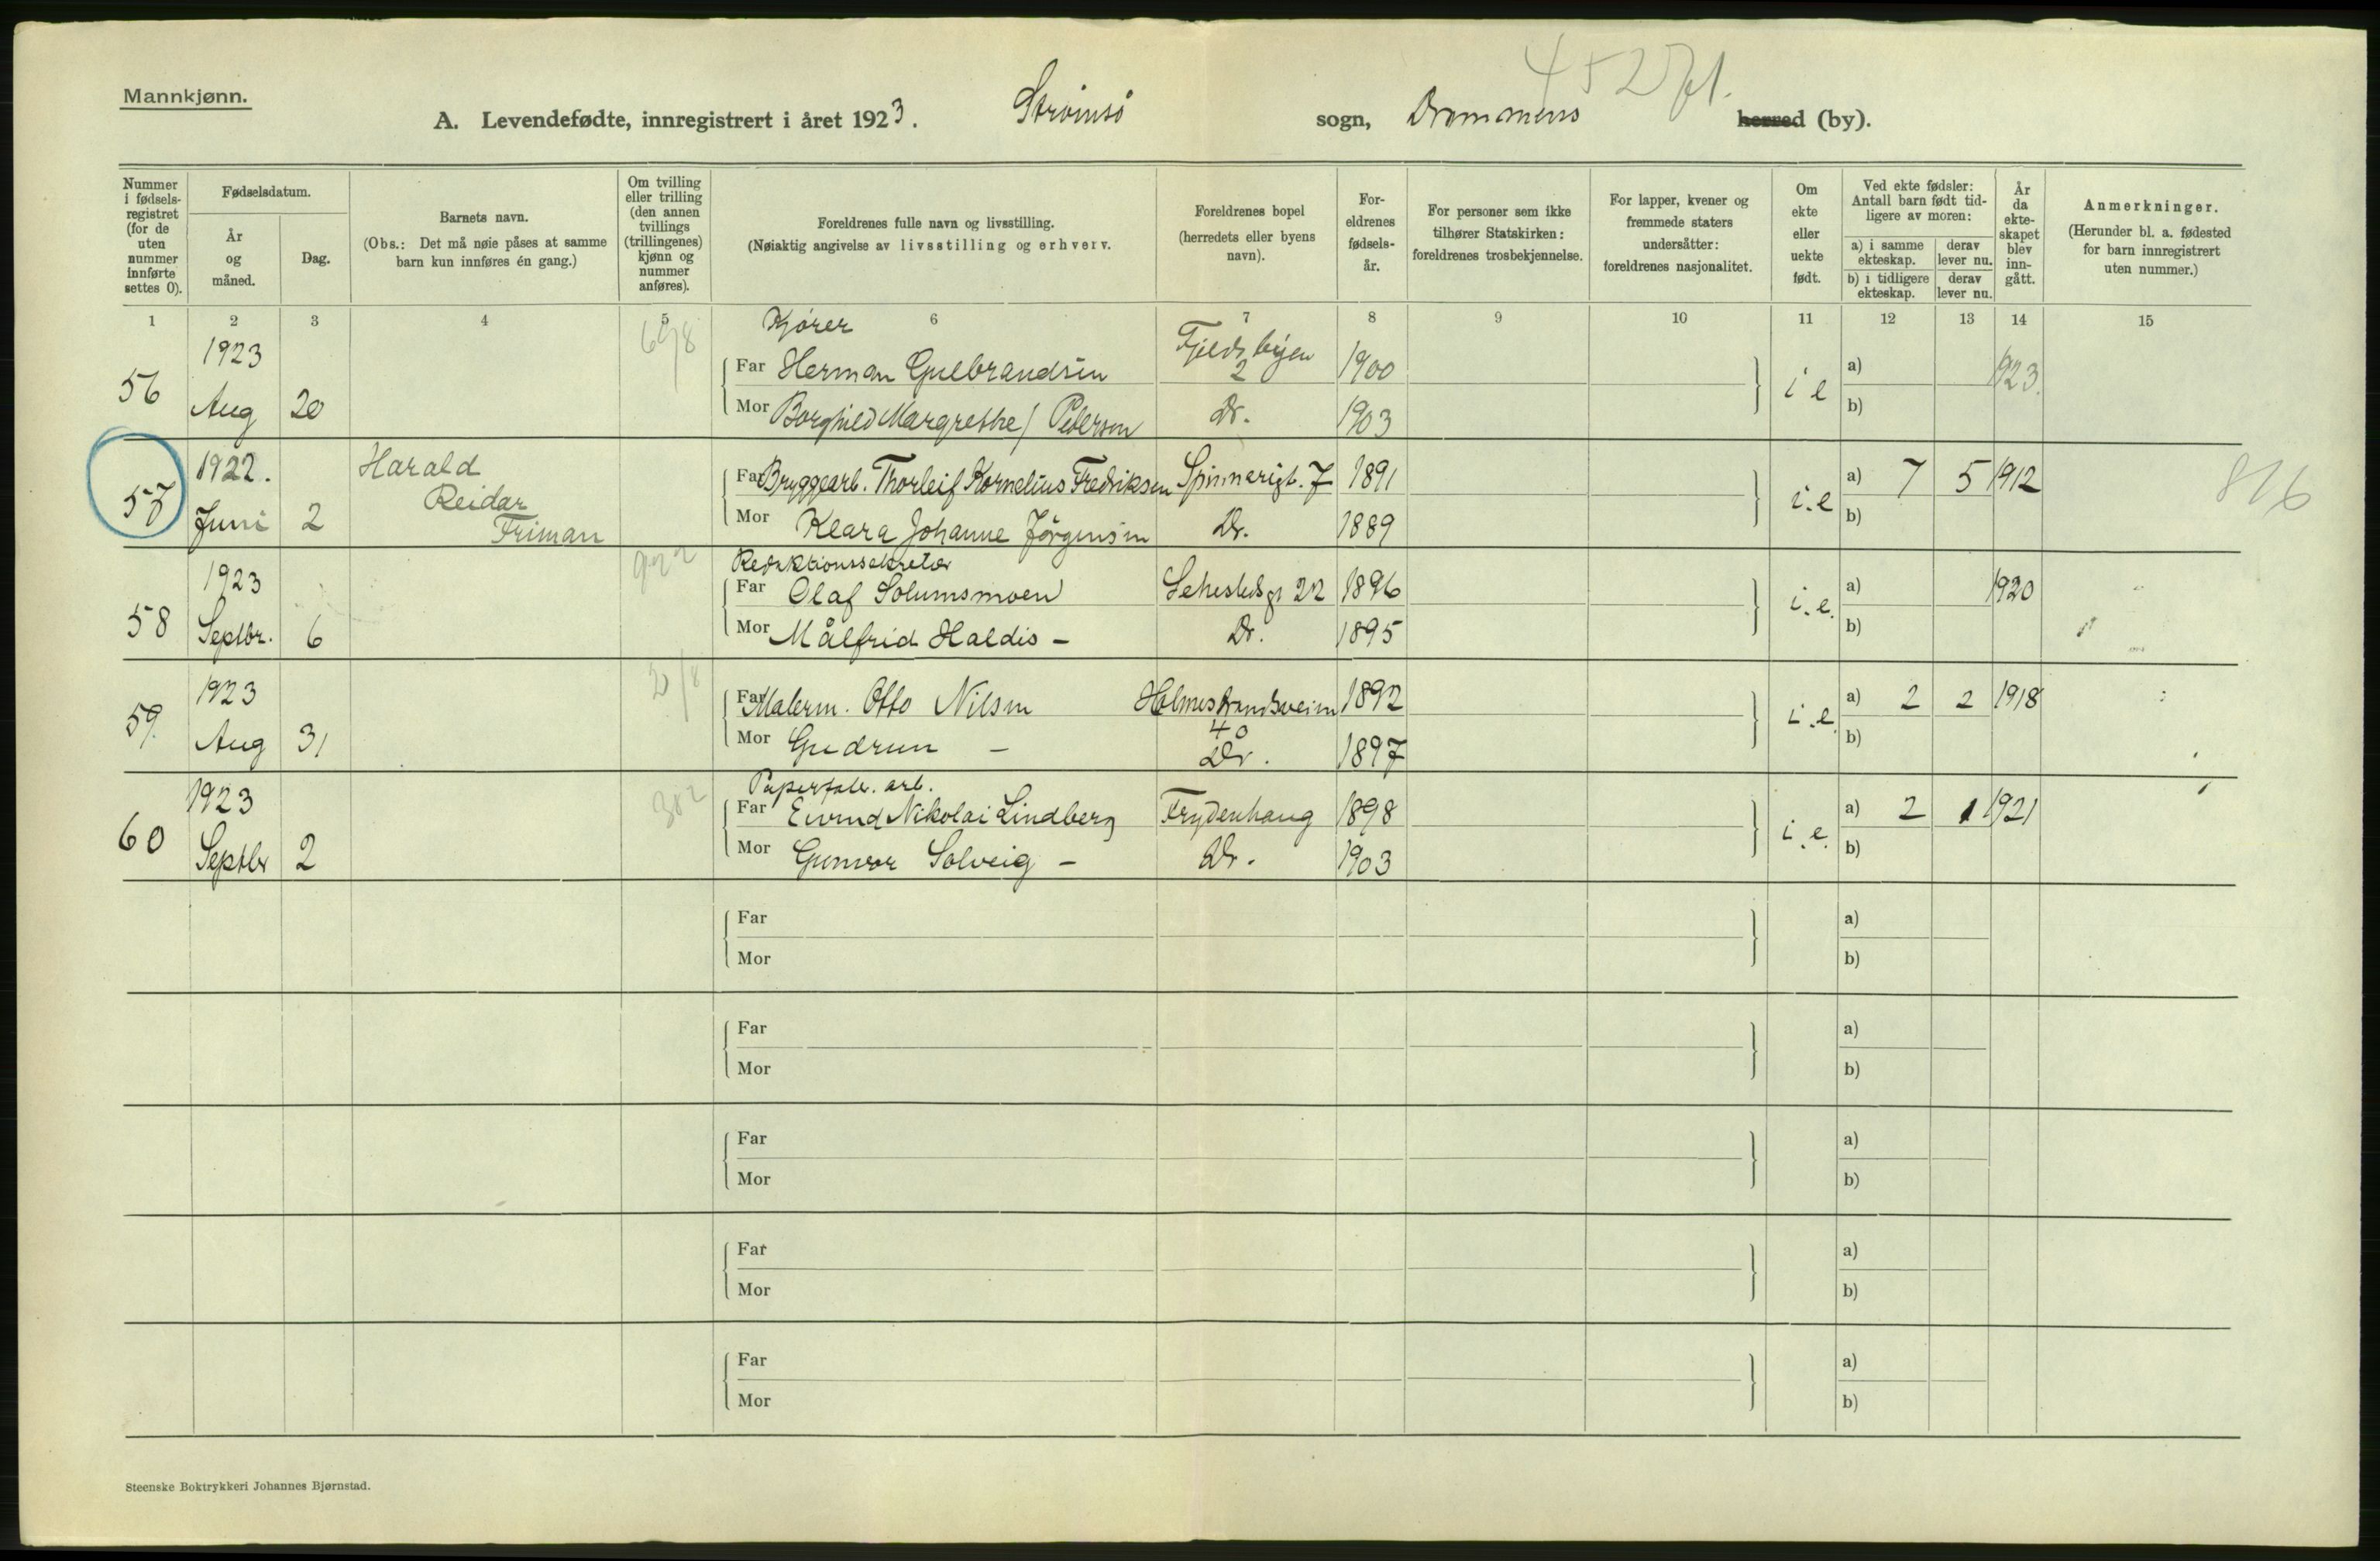 Mannkjønn.
A. Levendefødte, innregistrert i året 1923. Strømsö sogn, Drammens herred (by).
452 fl.
Nummer i fødselsregistret (for de uten nummer innførte settes 0).
Fødselsdatum.
År og måned.
Dag.
Barnets navn.
(Obs.: Det må nøie påses at samme barn kun innføres én gang.)
Om tvilling eller trilling (den annen tvillings (trillingenes) kjønn og nummer anføres).
Foreldrenes fulle navn og livsstilling.
(Nøiaktig angivelse av livsstilling og erhverv.
Foreldrenes bopel (herredets eller byens navn).
Foreldrenes fødselsår.
For personer som ikke tilhører Statskirken: foreldrenes trosbekjennelse.
For lapper, kvener og fremmede staters undersåtter: foreldrenes nasjonalitet.
Om ekte eller uekte født.
Ved ekte fødsler: Antall barn født tidligere av moren:
a) i samme ekteskap. derav lever nu.
b) i tidligere ekteskap. derav lever nu.
År da ekteskapet blev inngått.
Anmerkninger.
(Herunder bl. a. fødested for barn innregistrert uten nummer.)
1 2 3 4 5 6 7 8 9 10 11 12 13 14 15
Kjører
56 1923 Aug 20
Far Herman Gulbrandsen Fjeldbyen 2 1900 i e a) 1923
Mor Borghild Margrethe / Pedersen Dr. 1903 b)
57 1922. Juni 2 Harald Reidar Friman
Far Bryggearb. Thorleif Kornelius Fredriksen Spinnerigt. 7 1891 i.e a) 7 5 1912 816
Mor Klara Johanne Jörgensen Dr. 1889 b)
Redaktionssekretær
58 1923 Septbr. 6
Far Olaf Solumsmoen Sehestedsgt 22 1896 i.e. a) 1920
Mor Målfrid Haldis - Dr. 1895 b)
59. 1923 Aug 31
Far Malerm. Otto Nilsen Holmestrandsveien 40 1892 i.e. a) 2 2 1918
Mor Gudrun - Dr. 1897 b)
Papirfabr. arb.
60 1923 Septbr 2
Far Eivind Nikolai Lindberg Frydenhaug 1898 i.e. a) 2 1 1921
Mor Gunvor Solveig - Dr. 1903 b)
Far a)
Mor b)
Far a)
Mor b)
Far a)
Mor b)
Far a)
Mor b)
Far a)
Mor b)
Steenske Boktrykkeri Johannes Bjørnstad.